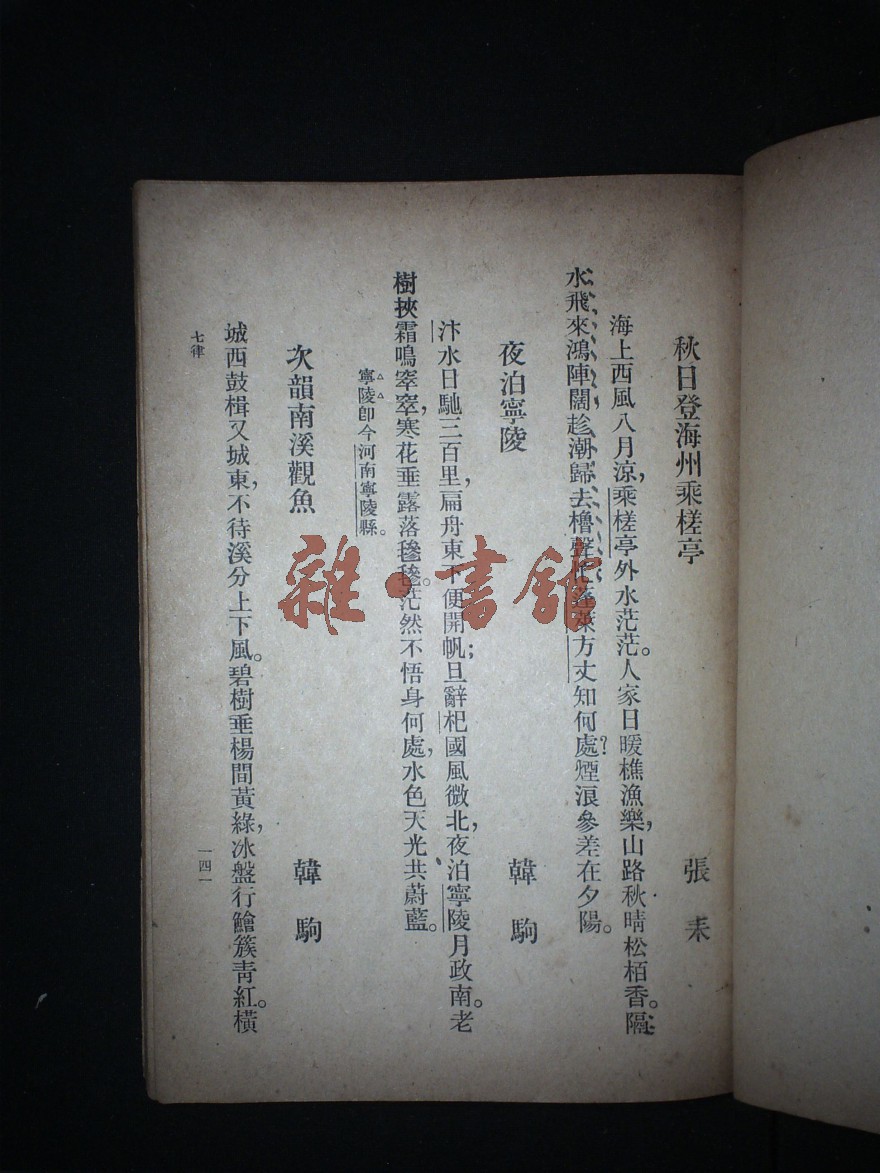 秋日登海州乘槎亭
張耒
海上西風八月涼，乘槎亭外水茫茫。人家日暖樵漁樂，山路秋晴松栢香。隔
水飛來鴻陣闊，趁潮歸去櫓聲忙。蓬萊方丈知何處？煙浪參差在夕陽。
夜泊寧陵
韓駒
汴水日馳三百里，扁舟東下便開帆；旦辭杞國風微北，夜泊寧陵月政南。老
樹挾霜鳴窣窣，寒花垂露落毿毿。茫然不悟身何處，水色天光共蔚藍。
寧陵卽今河南寧陵縣。
次韻南溪觀魚
韓駒
城西鼓楫又城東，不待溪分上下風。碧樹垂楊間黃綠，冰盤行鱠簇靑紅。橫
七律
一四一
雜·書館